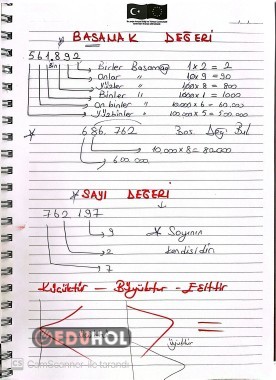 * BASAMAK DEĞERİ
561.892
Bin
Birler Basamağı 1x2 = 2
Onlar " 10x9 = 90
Yüzler " 100x8 = 800
Binler " 1000x1 = 1000
On binler " 10.000x6 = 60.000
Yüzbinler " 100.000x5 = 500.000
* 686.762 Bas. Değ. Bul
10.000x8 = 80.000
600.000
* SAYI DEĞERİ
762.197
9 * Sayının
2 kendisidir
7
Küçüktür — Büyüktür — Eşittir
< > =
EDUHOL
CS CamScanner ile tarandı